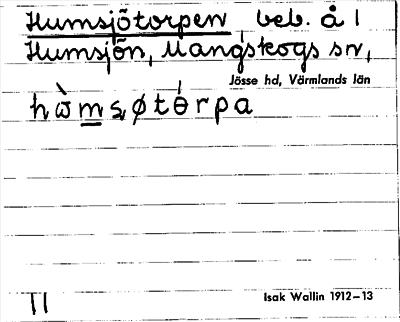 Humsjötorpen, beb. å 1
Humsjön, Mangskogs sn,
Jösse hd, Värmlands län
hὼmsøtórpa
11
Isak Wallin 1912–13